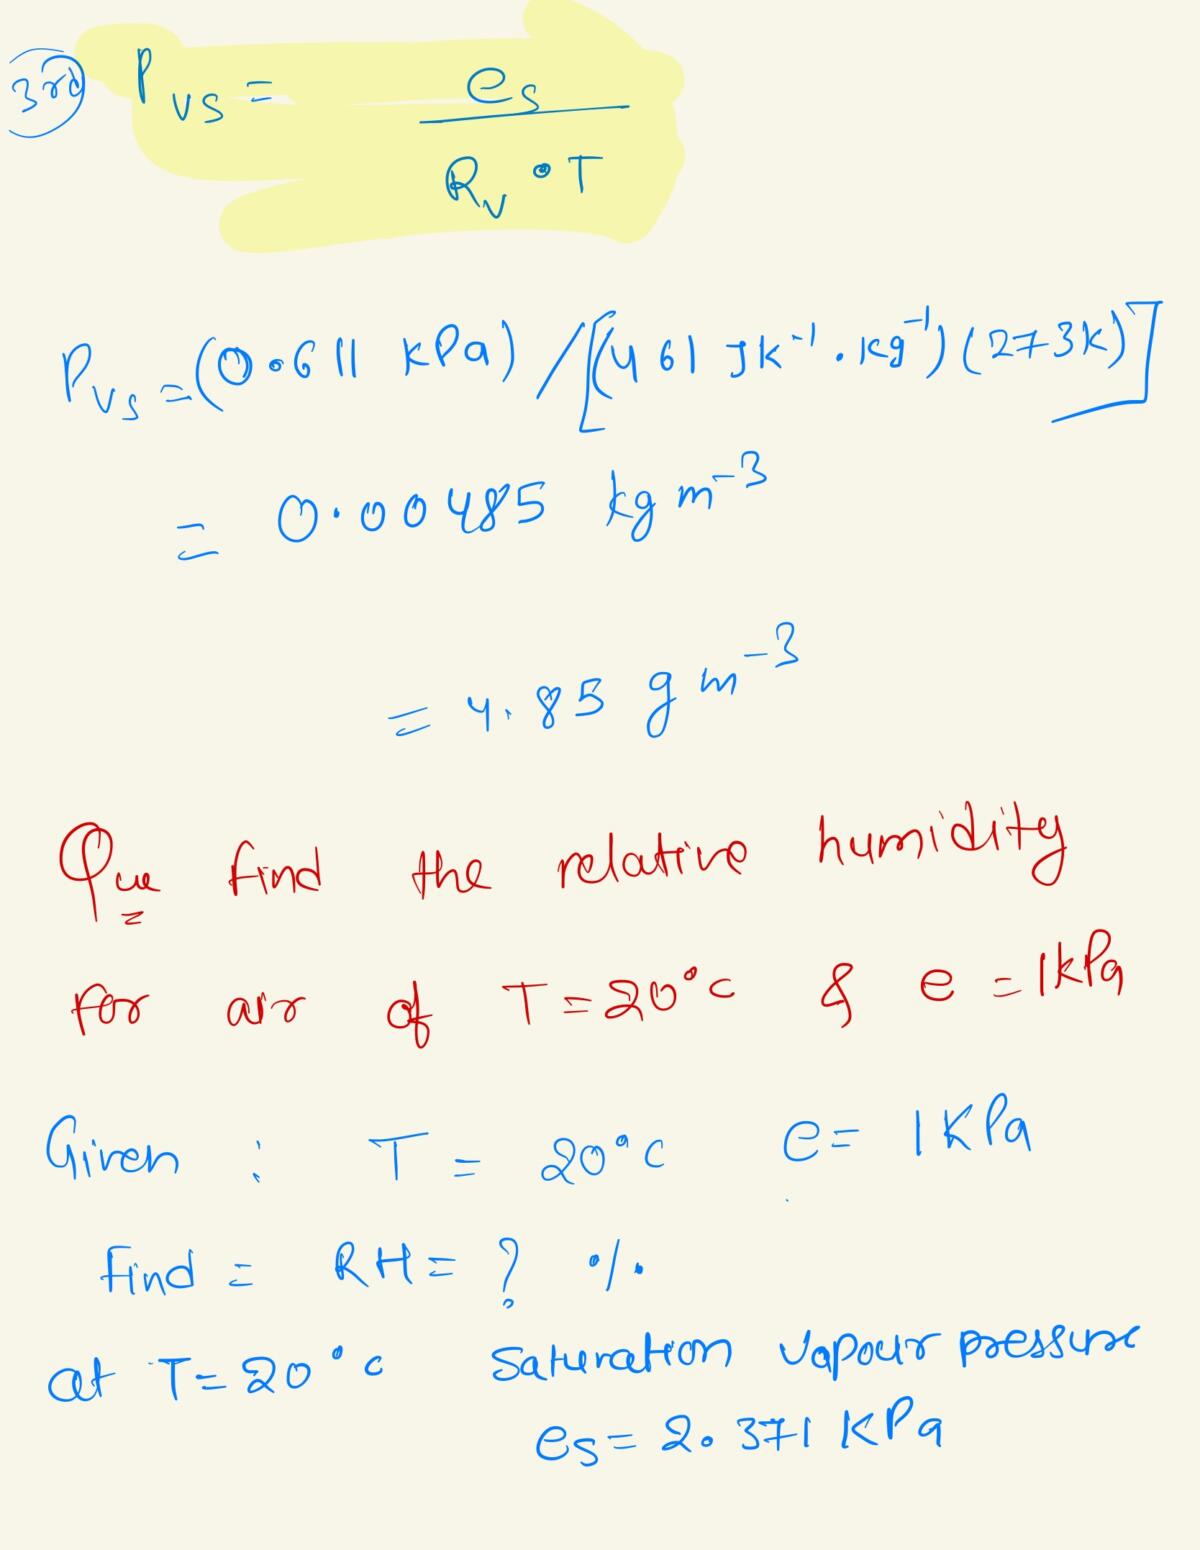 3rd P_vs = e_s / (R_v • T)
P_vs = (0.611 kPa) / [(461 J K⁻¹ . Kg⁻¹) (273K)]
= 0.00485 kg m⁻³
= 4.85 g m⁻³
Que find the relative humidity
for air of T = 20°C & e = 1kPa
Given : T = 20°C e = 1 KPa
Find = RH = ? %
at T = 20°C Saturation Vapour pressure
e_s = 2.371 KPa